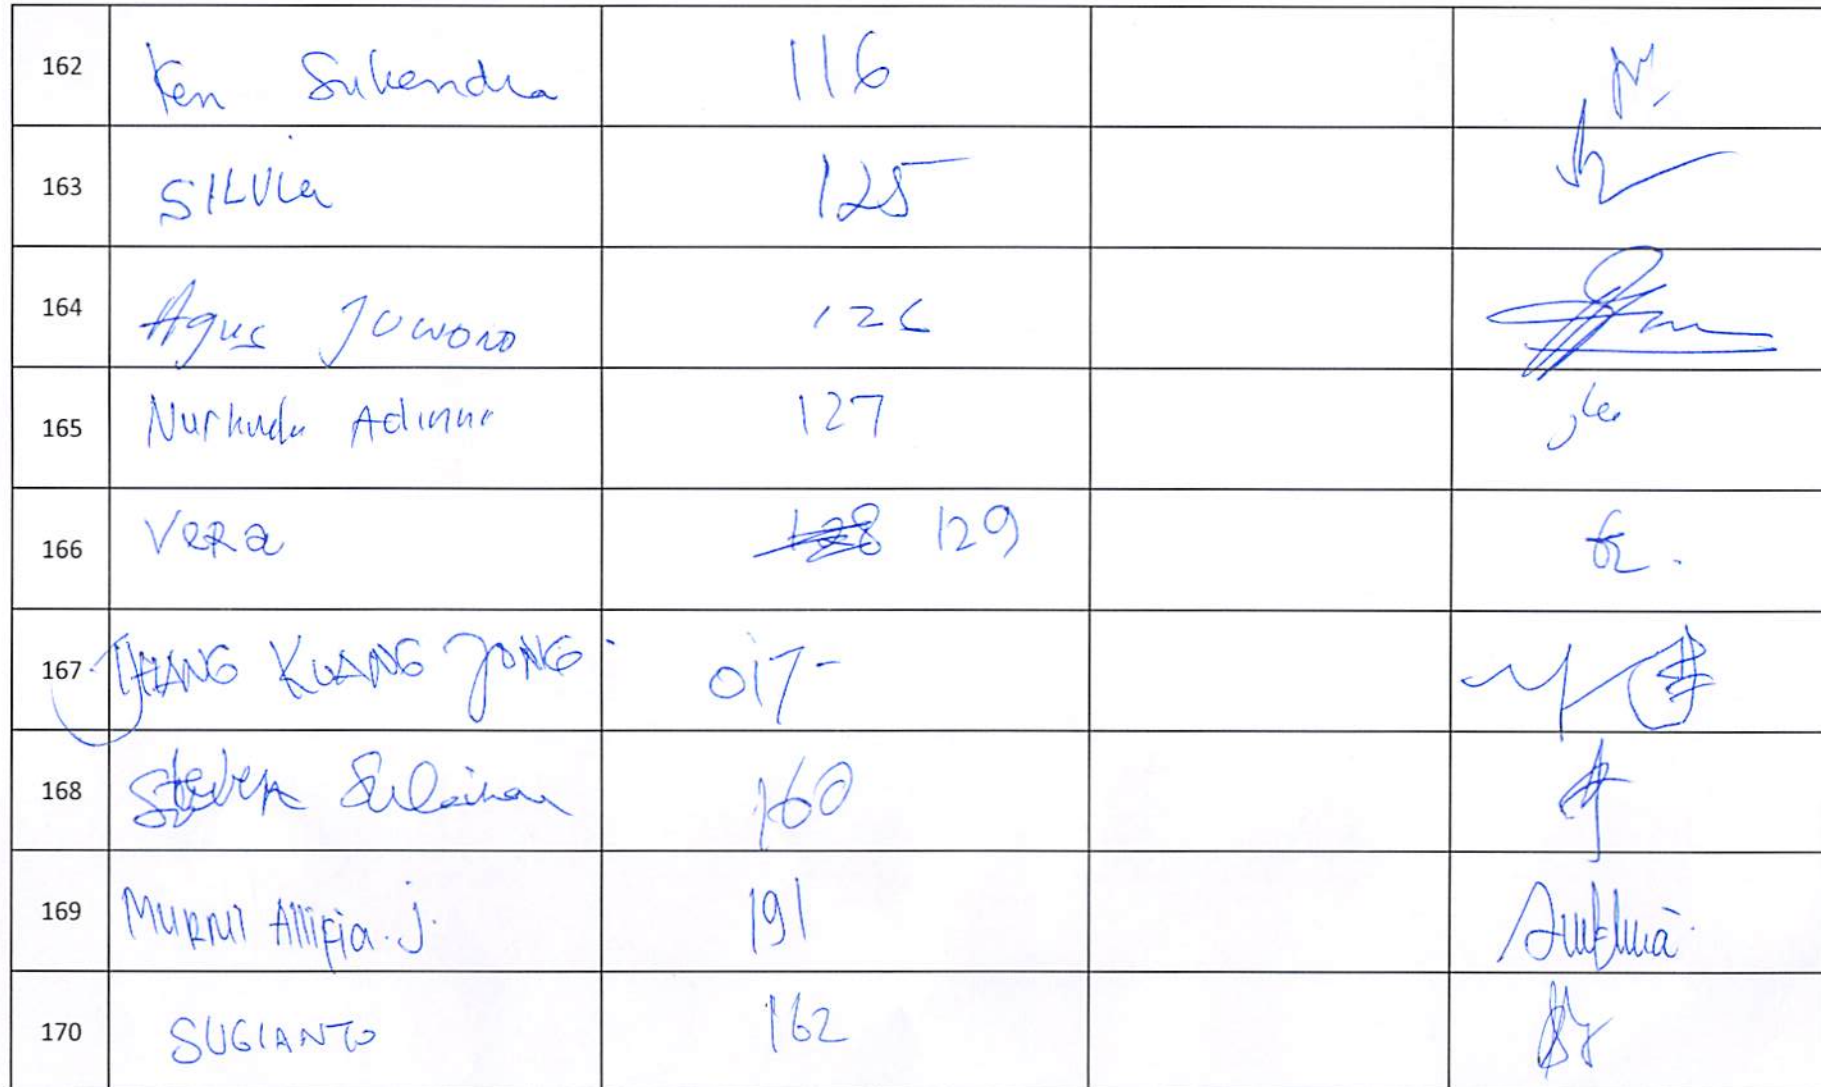 162 Ken Sukendra 116
163 SILVIa 125
164 Agus Juwono 126
165 Nurhuda 127
166 VERa 128 129
167 TJHANG KUANG JONG 017-
168 Steven Sulaiman 160
169 MURNII Allifia. J. 191
170 SUGIANTO 162